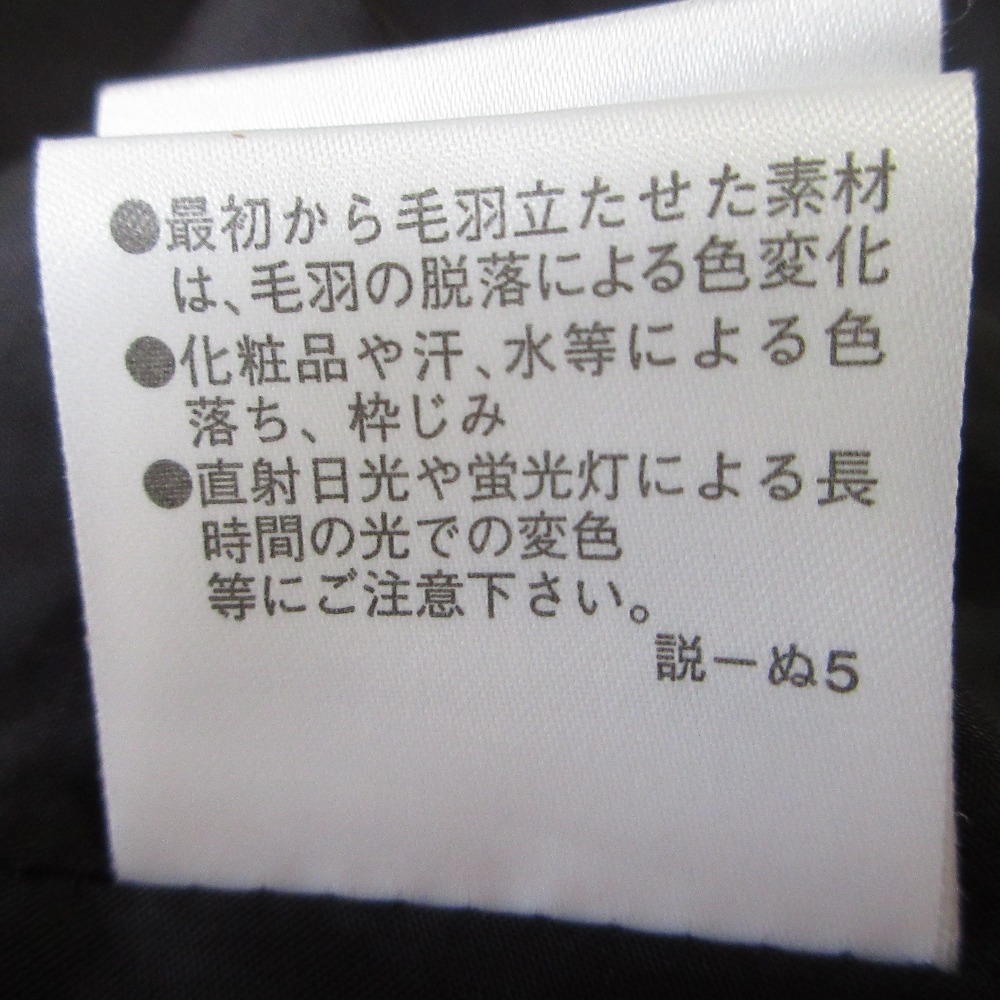 ●最初から毛羽立たせた素材
は、毛羽の脱落による色変化
●化粧品や汗、水等による色
落ち、枠じみ
●直射日光や蛍光灯による長
時間の光での変色
等にご注意下さい。
説ーぬ5